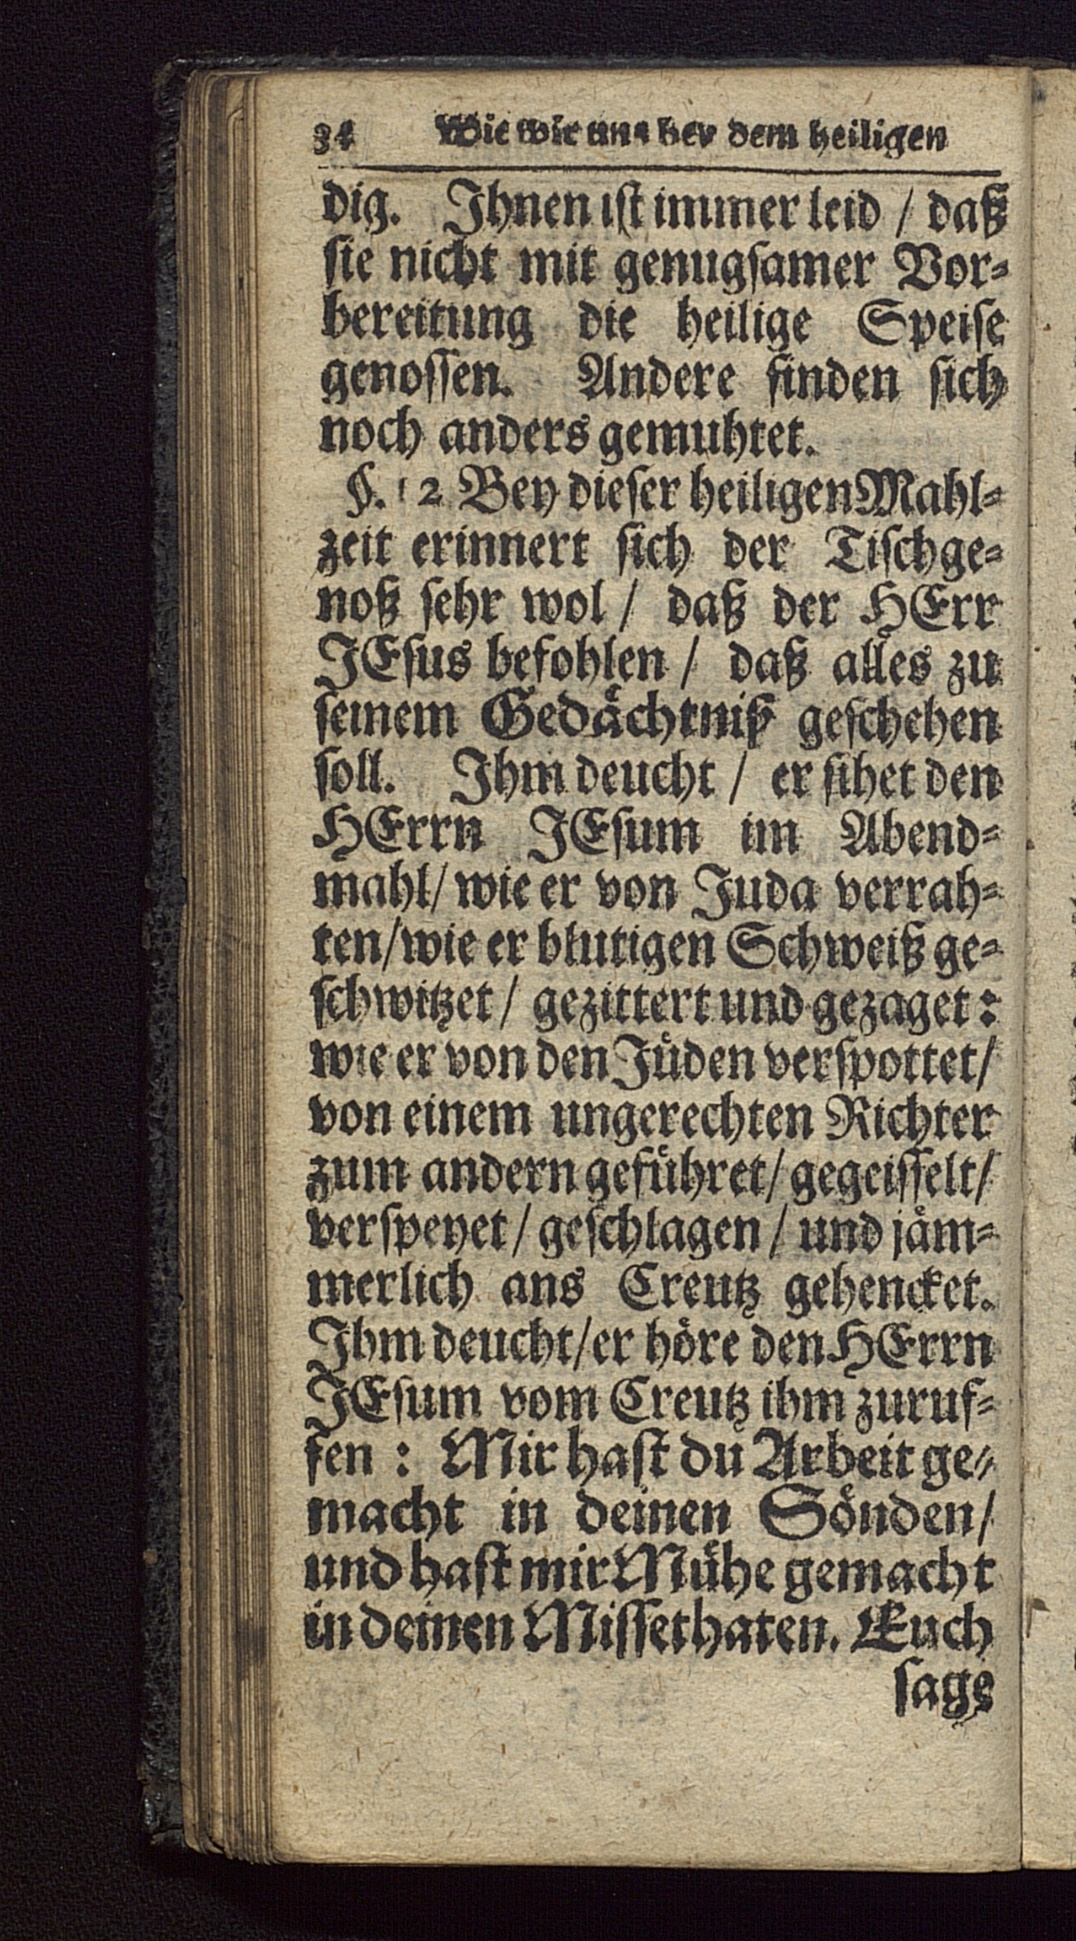 34 Wie wir uns bey dem heiligen
dig. Ihnen ist immer leid / daß
sie nicht mit genugsamer Vor-
bereitung die heilige Speise
genossen. Andere finden sich
noch anders gemuhtet.
§. 12 Bey dieser heiligen Mahl-
zeit erinnert sich der Tischge-
noß sehr wol / daß der HErr
JEsus befohlen / daß alles zu
seinem Gedächtniß geschehen
soll. Ihm deucht / er sihet den
HErrn JEsum im Abend-
mahl / wie er von Juda verrah-
ten / wie er blutigen Schweiß ge-
schwitzet / gezittert und gezaget:
wie er von den Jüden verspottet /
von einem ungerechten Richter
zum andern geführet / gegeisselt /
verspeyet / geschlagen / und jäm-
merlich ans Creutz gehencket.
Ihm deucht / er höre den HErrn
JEsum vom Creutz ihm zuruf-
fen: Mir hast du Arbeit ge-
macht in deinen Sönden /
und hast mir Mühe gemacht
in deinen Missethaten. Euch
sage